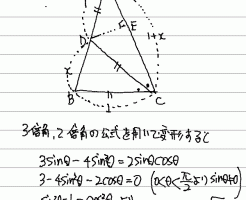 E
D
1+x
x
B
1
C
3倍角、2倍角の公式を用いて変形すると
3sinθ-4sin³θ=2sinθcosθ
3-4sin²θ-2cosθ=0 (0<θ<π/2より sinθ≠0)